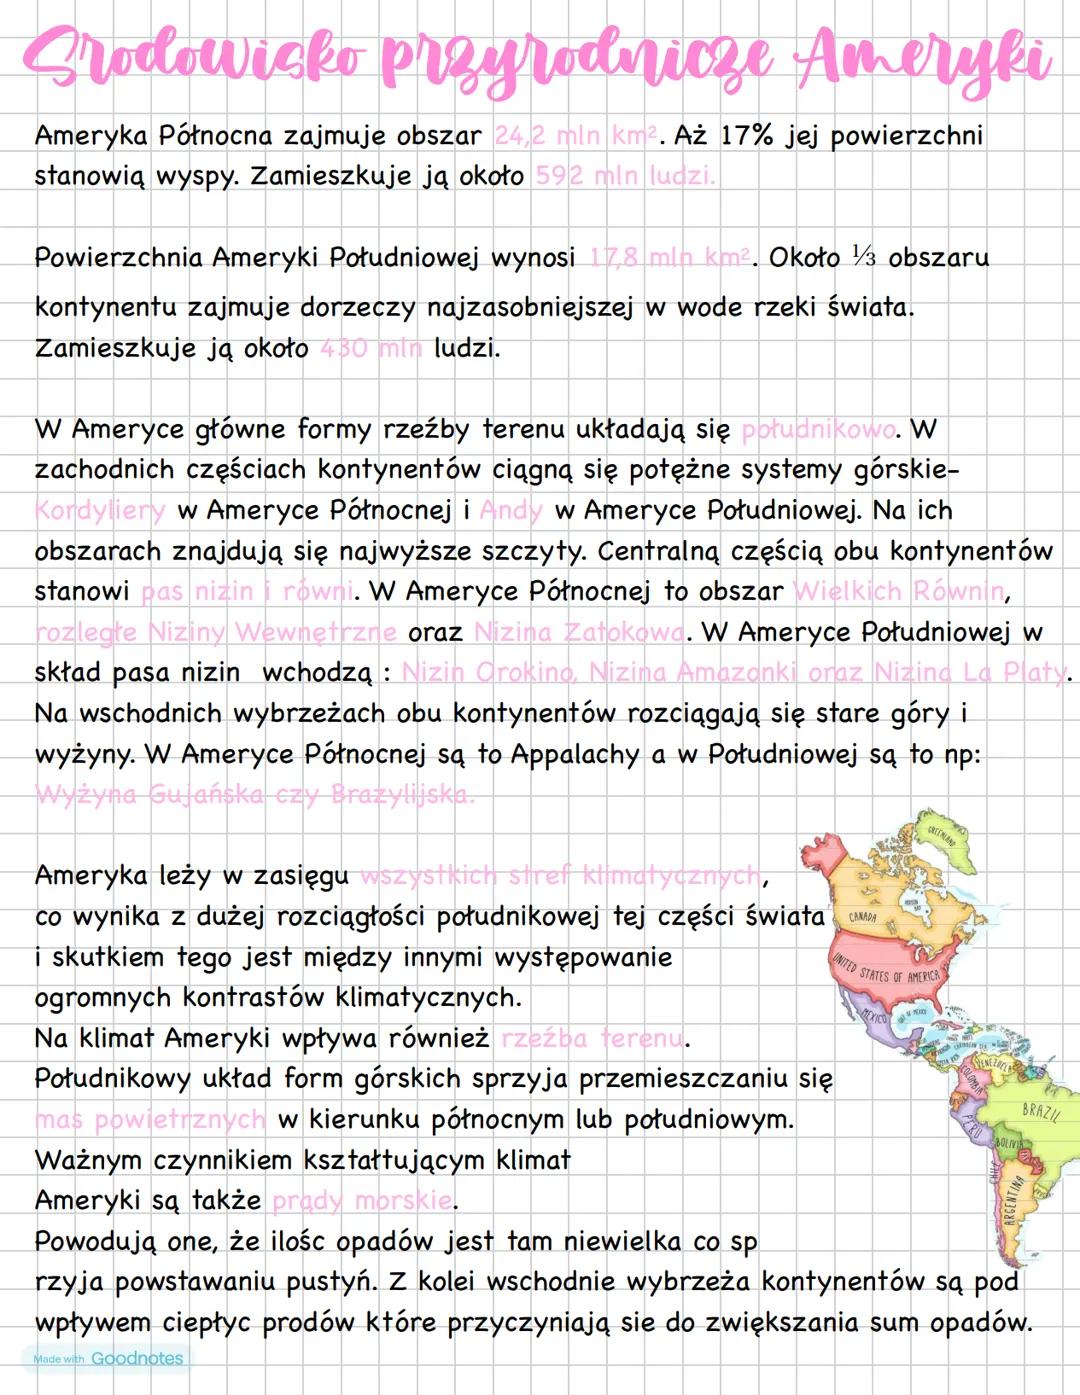 Srodowisko przyrodnicze Ameryki
Ameryka Północna zajmuje obszar 24,2 mln km². Aż 17% jej powierzchni
stanowią wyspy. Zamieszkuje ją około 592 mln ludzi.
Powierzchnia Ameryki Południowej wynosi 17,8 mln km². Około ⅓ obszaru
kontynentu zajmuje dorzeczy najzasobniejszej w wode rzeki świata.
Zamieszkuje ją około 430 mln ludzi.
W Ameryce główne formy rzeźby terenu układają się południkowo. W
zachodnich częściach kontynentów ciągną się potężne systemy górskie-
Kordyliery w Ameryce Północnej i Andy w Ameryce Południowej. Na ich
obszarach znajdują się najwyższe szczyty. Centralną częścią obu kontynentów
stanowi pas nizin i równi. W Ameryce Północnej to obszar Wielkich Równin,
rozległe Niziny Wewnętrzne oraz Nizina Zatokowa. W Ameryce Południowej w
skład pasa nizin wchodzą : Nizin Orokino, Nizina Amazonki oraz Nizina La Platy.
Na wschodnich wybrzeżach obu kontynentów rozciągają się stare góry i
wyżyny. W Ameryce Północnej są to Appalachy a w Południowej są to np:
Wyżyna Gujańska czy Brazylijska.
Ameryka leży w zasięgu wszystkich stref klimatycznych,
co wynika z dużej rozciągłości południkowej tej części świata
i skutkiem tego jest między innymi występowanie
ogromnych kontrastów klimatycznych.
Na klimat Ameryki wpływa również rzeźba terenu.
Południkowy układ form górskich sprzyja przemieszczaniu się
mas powietrznych w kierunku północnym lub południowym.
Ważnym czynnikiem kształtującym klimat
Ameryki są także prądy morskie.
Powodują one, że ilośc opadów jest tam niewielka co sp
rzyja powstawaniu pustyń. Z kolei wschodnie wybrzeża kontynentów są pod
wpływem ciepłyc prodów które przyczyniają sie do zwiększania sum opadów.
GREENLAND
HUDSON BAY
CANADA
UNITED STATES OF AMERICA
MEXICO
GULF OF MEXICO
CARIBBEAN SEA
VENEZUELA
COLOMBIA
BRAZIL
PERU
BOLIVIA
CHILE
ARGENTINA
Made with Goodnotes